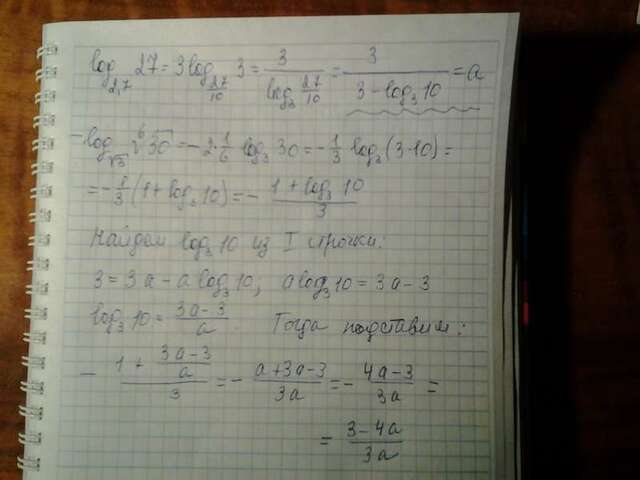 log_{2,7} 27 = 3 log_{27/10} 3 = 3/(log_3 27/10) = 3/(3 - log_3 10) = a
- log_{√3} ⁶√30 = - 2·1/6 log_3 30 = - 1/3 log_3 (3·10) =
= - 1/3 (1 + log_3 10) = - (1 + log_3 10)/3
Найдем log_3 10 из I строчки:
3 = 3a - a log_3 10, a log_3 10 = 3a - 3
log_3 10 = (3a - 3)/a. Тогда подставим:
- (1 + (3a - 3)/a)/3 = - (a + 3a - 3)/3a = - (4a - 3)/3a =
= (3 - 4a)/3a